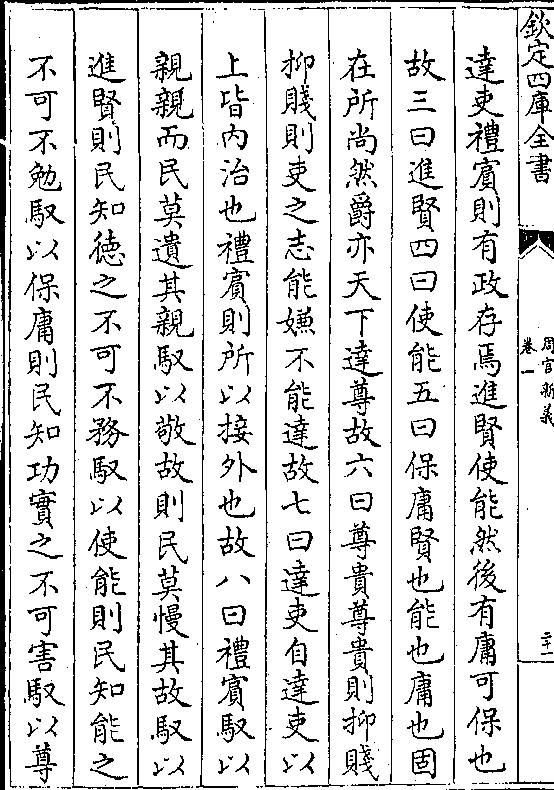 欽定四庫全書
周官新義
卷一
二十一
達吏禮賓則有政存焉進賢使能然後有庸可保也
故三曰進賢四曰使能五曰保庸賢也能也庸也固
在所尚然爵亦天下達尊故六曰尊貴尊貴則抑賤
抑賤則吏之志能嫌不能達故七曰達吏自達吏以
上皆内治也禮賓則所以接外也故八曰禮賓馭以
親親而民莫遺其親馭以敬故則民莫慢其故馭以
進賢則民知德之不可不務馭以使能則民知能之
不可不勉馭以保庸則民知功實之不可害馭以尊